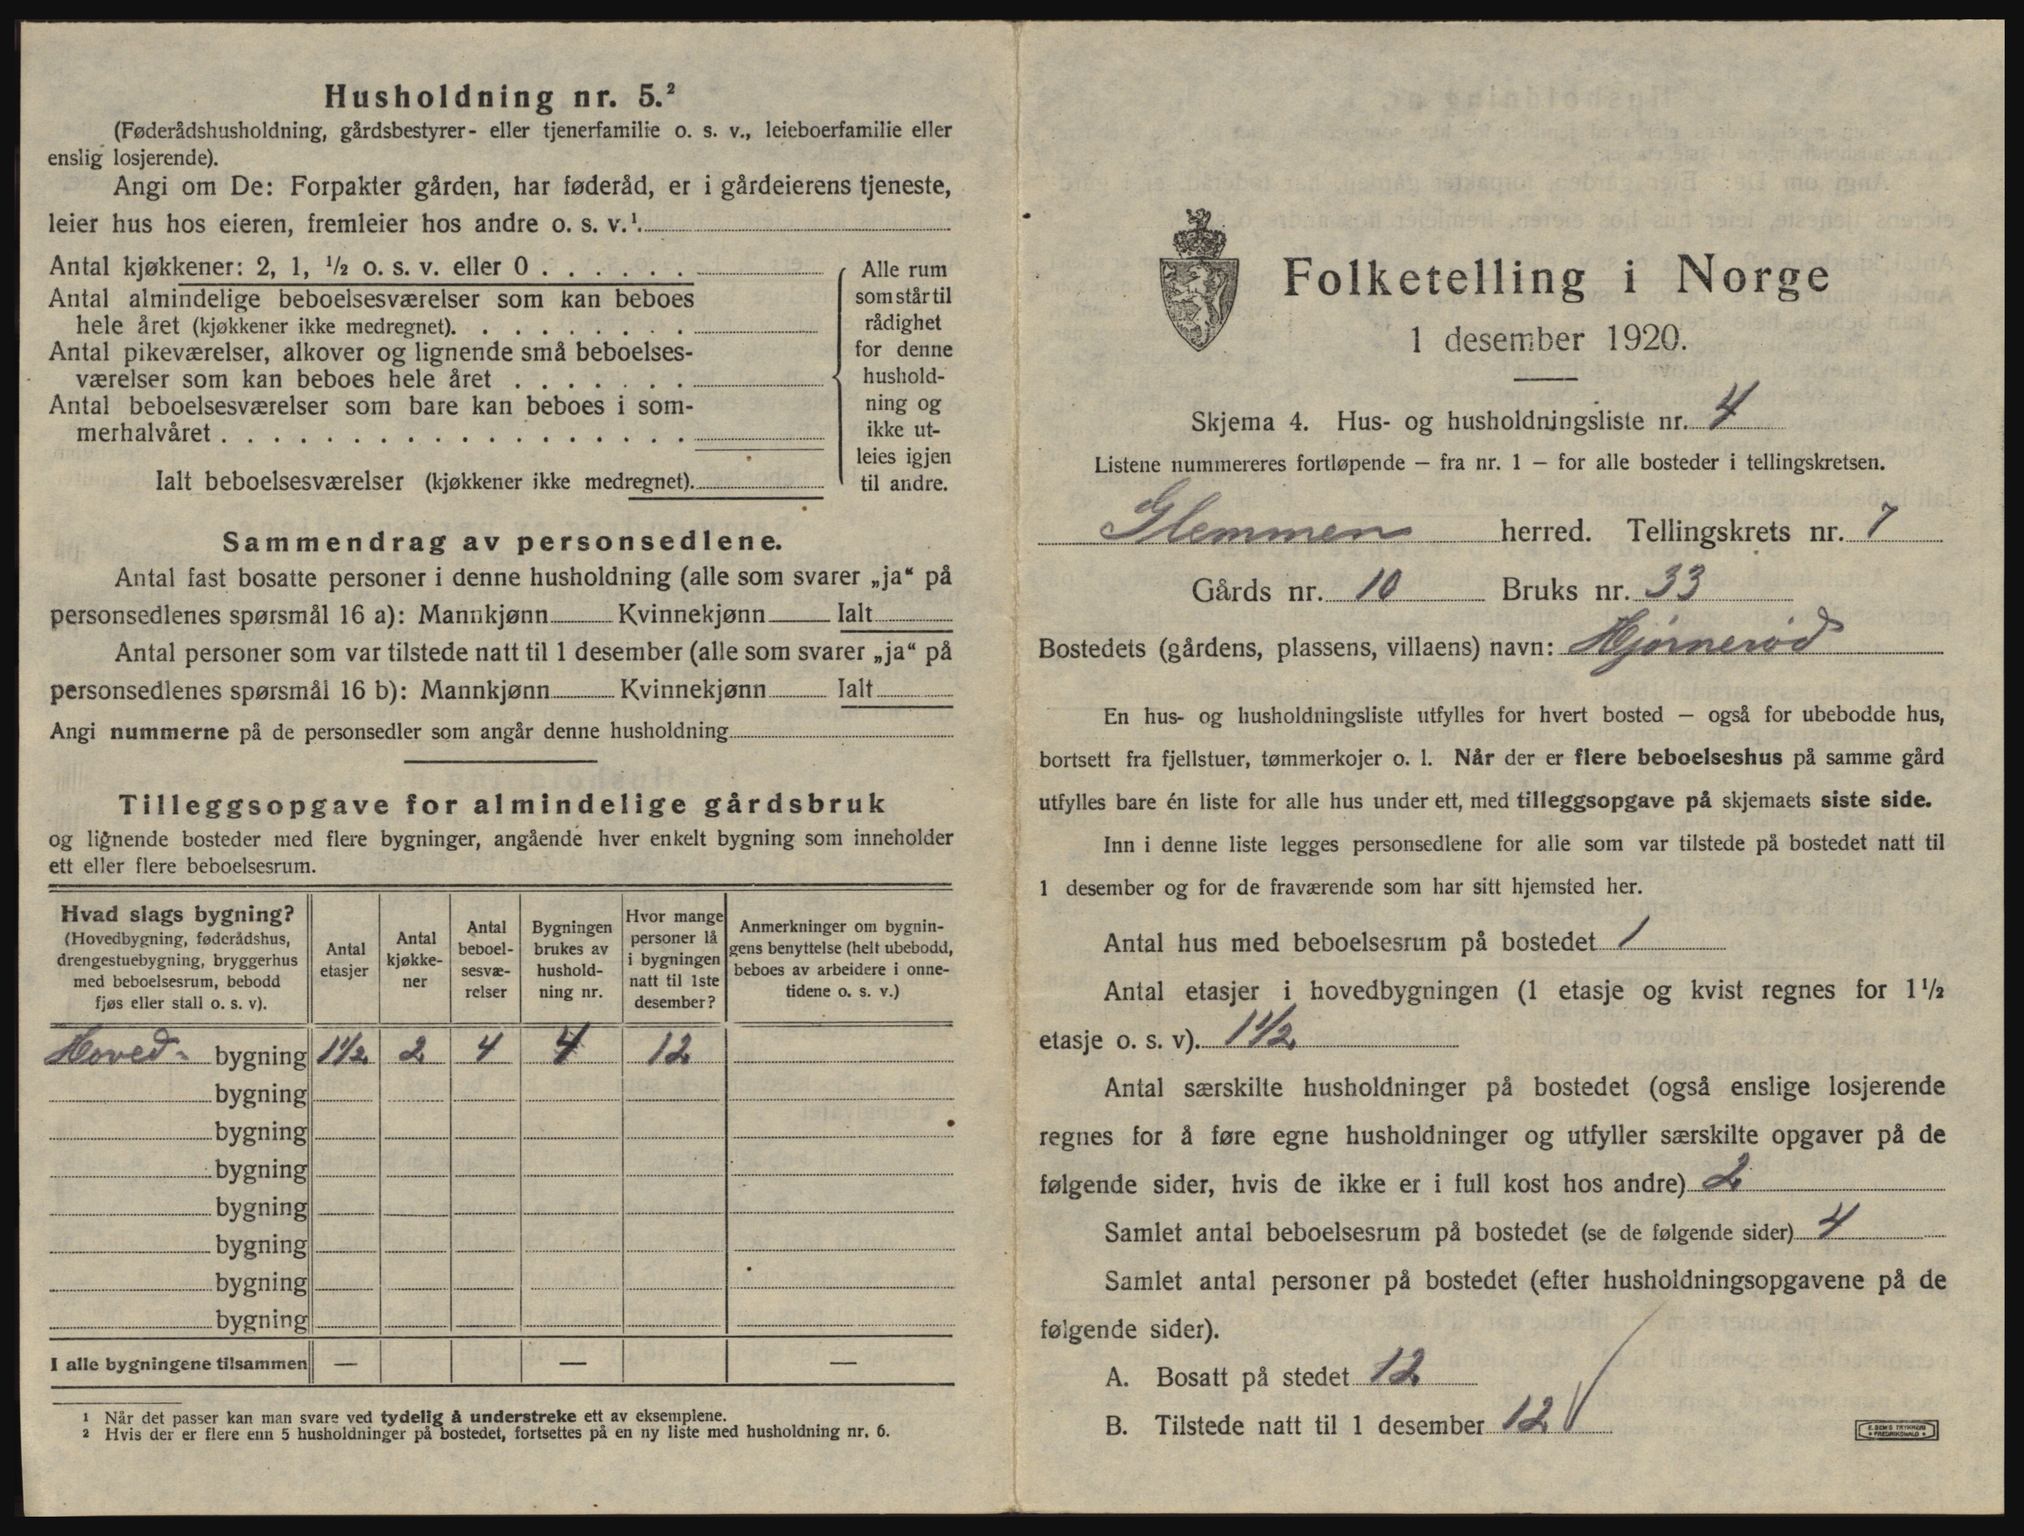 Husholdning nr. 5.²
(Føderådshusholdning, gårdsbestyrer- eller tjenerfamilie o. s. v., leieboerfamilie eller
enslig losjerende).
Angi om De: Forpakter gården, har føderåd, er i gårdeierens tjeneste,
leier hus hos eieren, fremleier hos andre o. s. v.¹
Antal kjøkkener: 2, 1, ½ o. s. v. eller 0
Antal almindelige beboelsesværelser som kan beboes
hele året (kjøkkener ikke medregnet)
Antal pikeværelser, alkover og lignende små beboelses-
værelser som kan beboes hele året
Antal beboelsesværelser som bare kan beboes i som-
merhalvåret
Ialt beboelsesværelser (kjøkkener ikke medregnet)
Alle rum
som står til
rådighet
for denne
hushold-
ning og
ikke ut-
leies igjen
til andre.
Sammendrag av personsedlene.
Antal fast bosatte personer i denne husholdning (alle som svarer „ja“ på
personsedlenes spørsmål 16 a): Mannkjønn Kvinnekjønn Ialt
Antal personer som var tilstede natt til 1 desember (alle som svarer „ja“ på
personsedlenes spørsmål 16 b): Mannkjønn Kvinnekjønn Ialt
Angi nummerne på de personsedler som angår denne husholdning
Tilleggsopgave for almindelige gårdsbruk
og lignende bosteder med flere bygninger, angående hver enkelt bygning som inneholder
ett eller flere beboelsesrum.
Hvad slags bygning?
(Hovedbygning, føderådshus,
drengestuebygning, bryggerhus
med beboelsesrum, bebodd
fjøs eller stall o. s. v).
Antal
etasjer
Antal
kjøkke-
ner
Antal
beboel-
sesvæ-
relser
Bygningen
brukes av
hushold-
ning nr.
Hvor mange
personer lå
i bygningen
natt til 1ste
desember?
Anmerkninger om bygnin-
gens benyttelse (helt ubebodd,
beboes av arbeidere i onne-
tidene o. s. v.)
Hoved- bygning 1½ 2 4 4 12
bygning
bygning
bygning
bygning
bygning
bygning
bygning
I alle bygningene tilsammen — — —
¹ Når det passer kan man svare ved tydelig å understreke ett av eksemplene.
² Hvis der er flere enn 5 husholdninger på bostedet, fortsettes på en ny liste med husholdning nr. 6.
Folketelling i Norge
1 desember 1920.
Skjema 4. Hus- og husholdningsliste nr. 4
Listene nummereres fortløpende – fra nr. 1 – for alle bosteder i tellingskretsen.
Glemmen herred. Tellingskrets nr. 7
Gårds nr. 10 Bruks nr. 33
Bostedets (gårdens, plassens, villaens) navn: Hjørnerød
En hus- og husholdningsliste utfylles for hvert bosted – også for ubebodde hus,
bortsett fra fjellstuer, tømmerkojer o. l. Når der er flere beboelseshus på samme gård
utfylles bare én liste for alle hus under ett, med tilleggsopgave på skjemaets siste side.
Inn i denne liste legges personsedlene for alle som var tilstede på bostedet natt til
1 desember og for de fraværende som har sitt hjemsted her.
Antal hus med beboelsesrum på bostedet 1
Antal etasjer i hovedbygningen (1 etasje og kvist regnes for 1½
etasje o. s. v). 1½
Antal særskilte husholdninger på bostedet (også enslige losjerende
regnes for å føre egne husholdninger og utfyller særskilte opgaver på de
følgende sider, hvis de ikke er i full kost hos andre) 2
Samlet antal beboelsesrum på bostedet (se de følgende sider) 4
Samlet antal personer på bostedet (efter husholdningsopgavene på de
følgende sider).
A. Bosatt på stedet 12
B. Tilstede natt til 1 desember 12